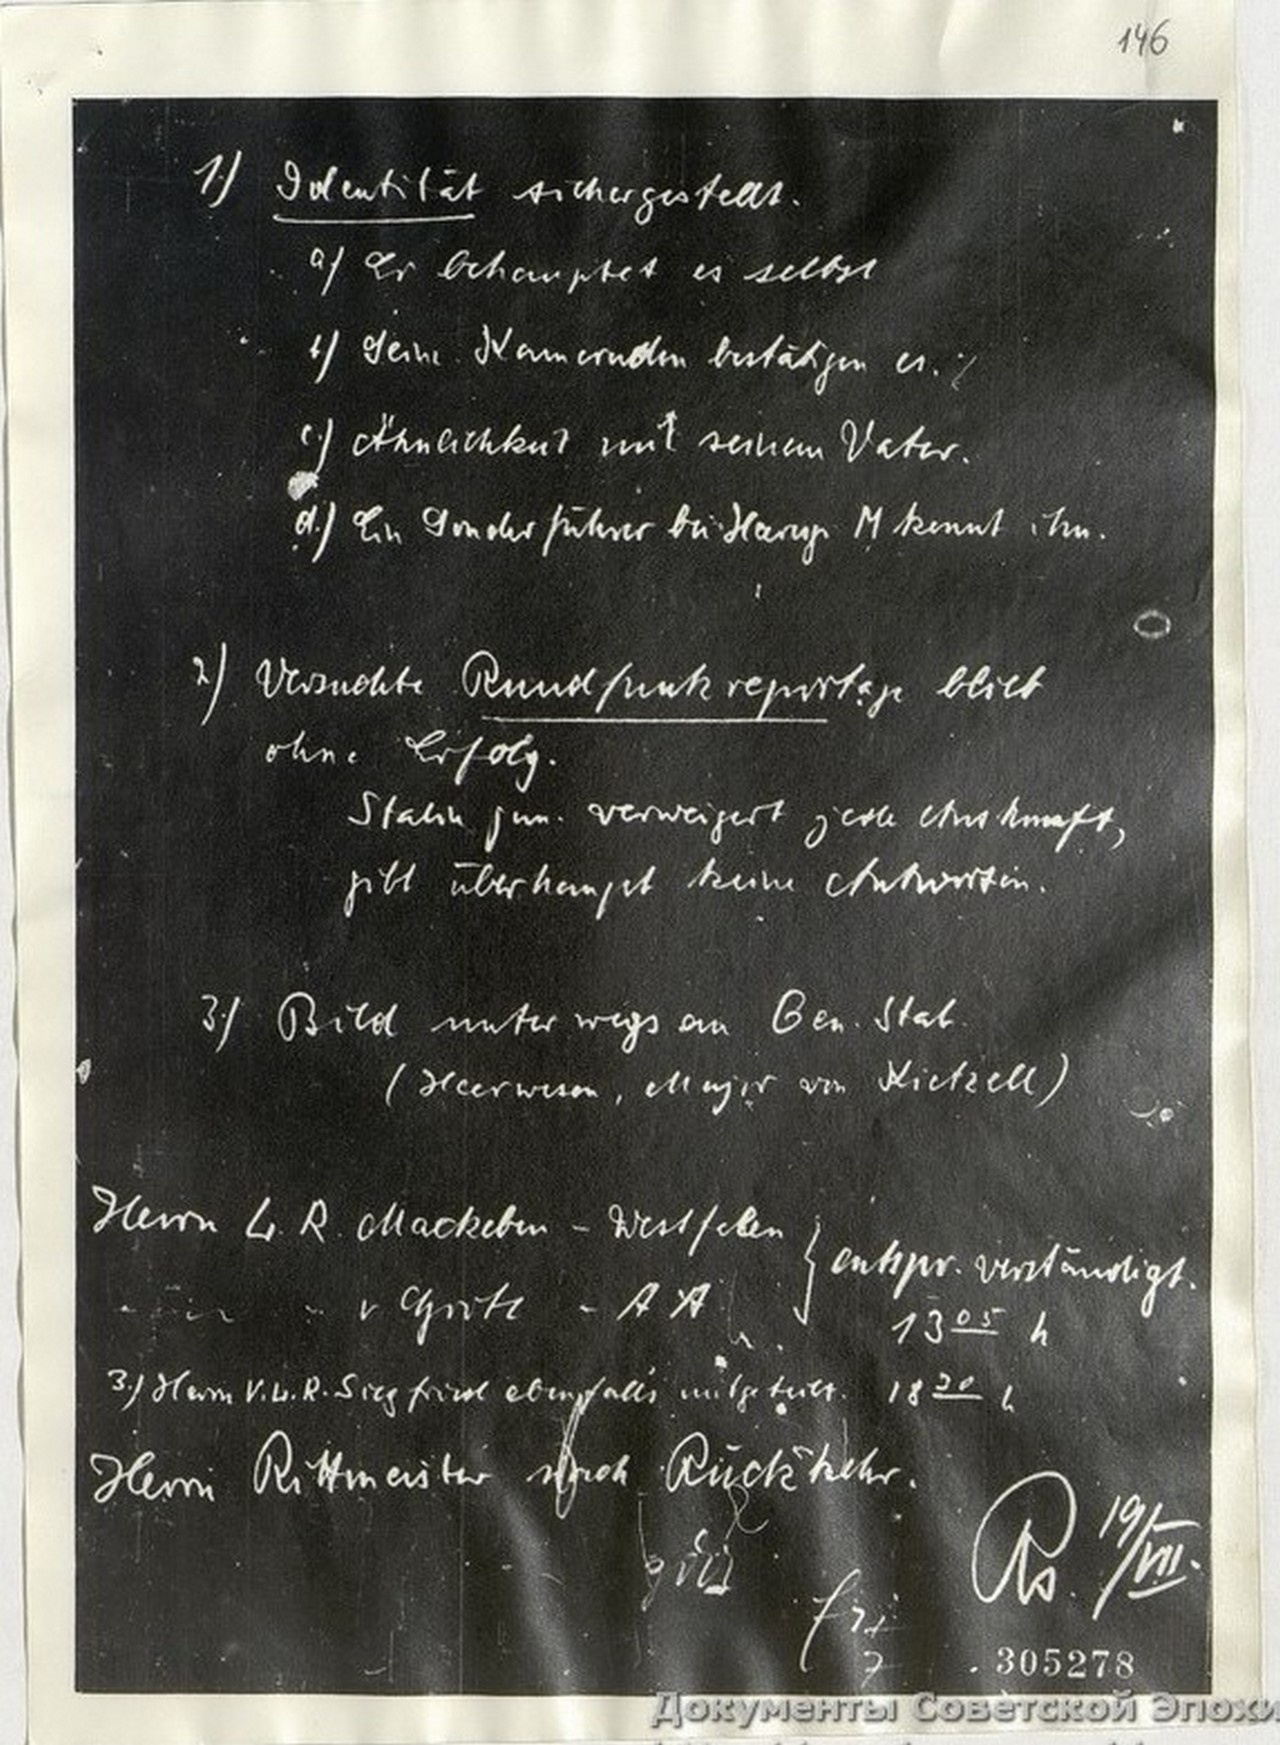 146
1.) Identität sichergestellt.
a) Er behauptet es selbst
b) Seine Kameraden bestätigen es.
c.) Ähnlichkeit mit seinem Vater.
d.) Ein Sonderführer bei H. M kennt ihn.
2) Versuchte Rundfunkreportage blieb
ohne Erfolg.
Stalin jun. verweigert jede Auskunft,
gibt überhaupt keine Antworten.
3.) Bild unterwegs an Gen. Stab.
(Heerwesen, Major von Kietzell)
Herrn L. R. Mackeben - Westfalen
entspr. verständigt.
v Grote - AA
13 05 h
3.) Herrn V. L. R. Siegfried ebenfalls mitgeteilt. 18 h
Herrn Rittmeister nach Rückkehr.
19/VII.
305278
Документы Советской Эпохи